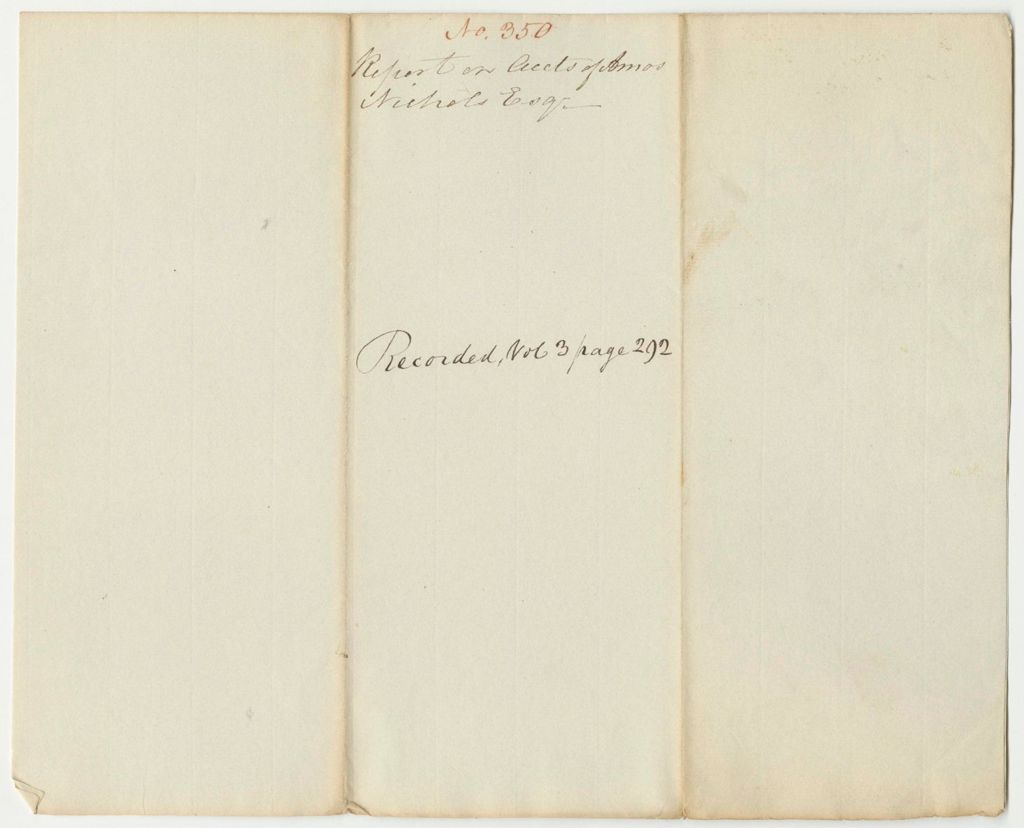 No. 350
Report on Accts of Amos
Nichols Esq.
Recorded, Vol 3 page 292